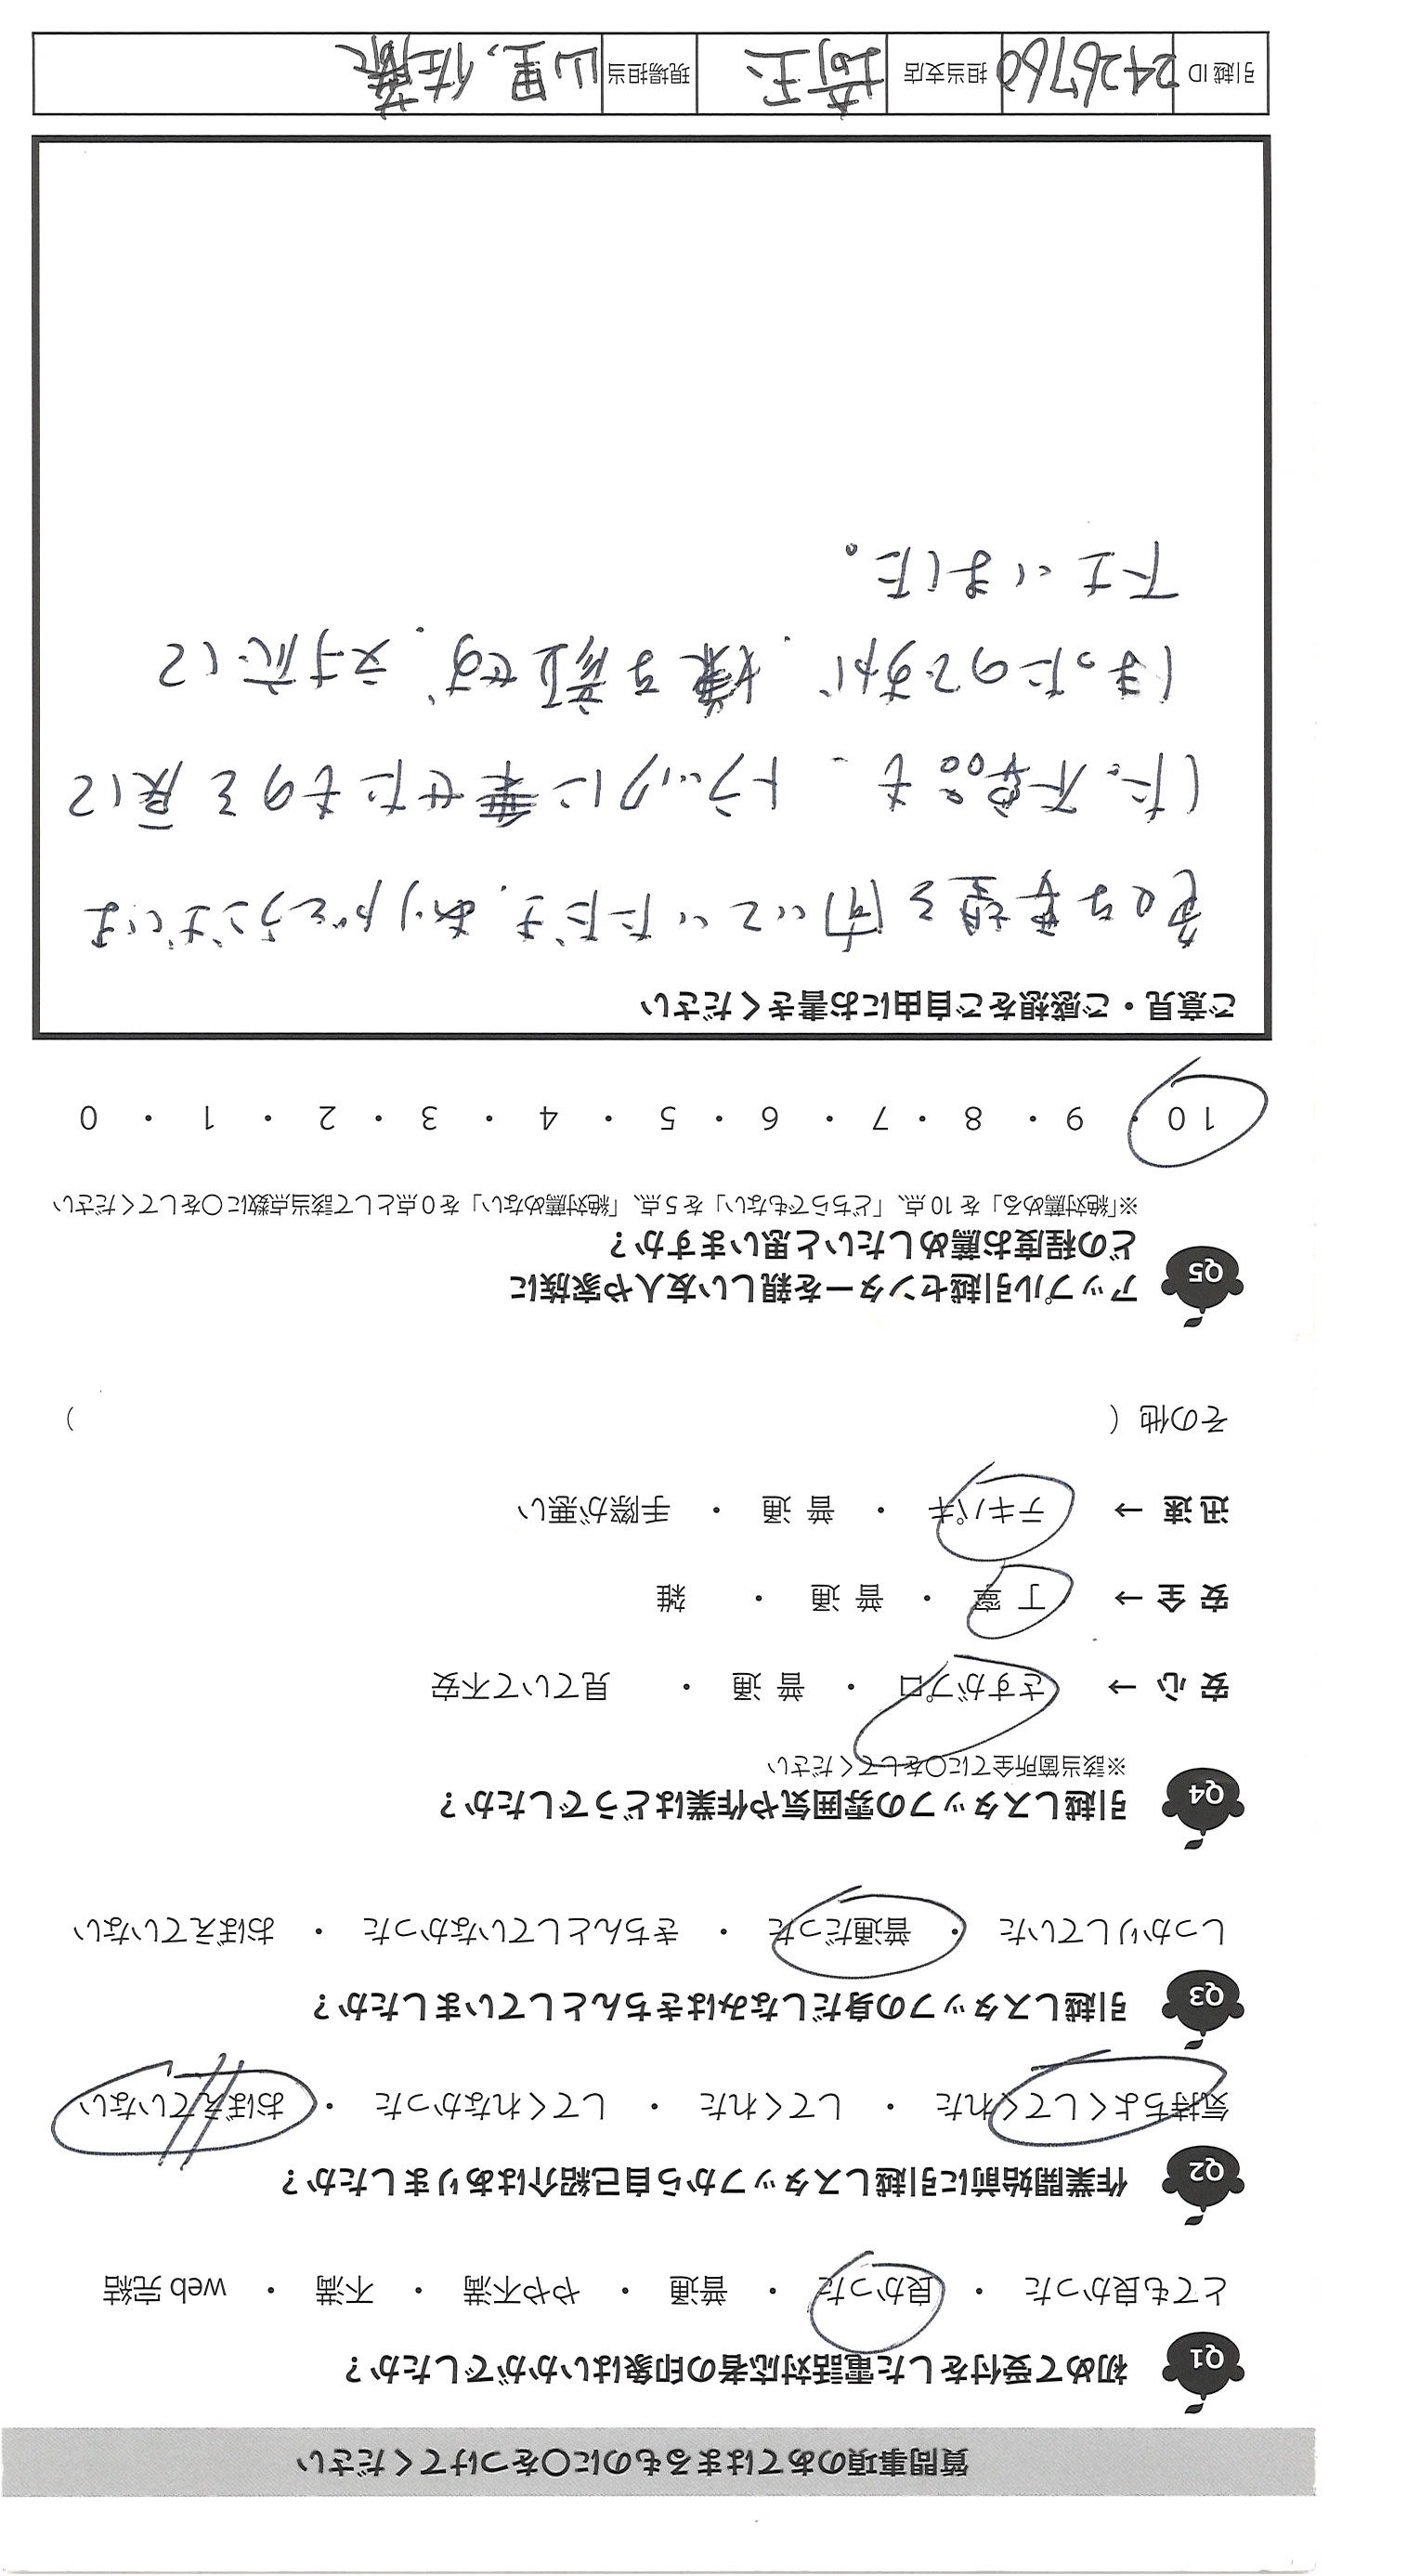 質問事項のあてはまるものに○をつけてください
Q1 初めて受付をした電話対応者の印象はいかがでしたか？
とても良かった ・ 良かった ・ 普通 ・ やや不満 ・ 不満 ・ web 完結
Q2 作業開始前に引越しスタッフから自己紹介はありましたか？
気持ちよくしてくれた ・ してくれた ・ してくれなかった ・ おぼえていない
Q3 引越しスタッフの身だしなみはきちんとしていましたか？
しっかりしていた ・ 普通だった ・ きちんとしていなかった ・ おぼえていない
Q4 引越しスタッフの雰囲気や作業はどうでしたか？
※該当箇所全てに○をしてください
安 心 → さすがプロ ・ 普 通 ・ 見ていて不安
安 全 → 丁 寧 ・ 普 通 ・ 雑
迅 速 → テキパキ ・ 普 通 ・ 手際が悪い
その他（ ）
Q5 アップル引越センターを親しい友人や家族に
どの程度お薦めしたいと思いますか？
※「絶対薦める」を 10 点、「どちらでもない」を 5 点、「絶対薦めない」を 0 点として該当点数に○をしてください
10 ・ 9 ・ 8 ・ 7 ・ 6 ・ 5 ・ 4 ・ 3 ・ 2 ・ 1 ・ 0
ご意見・ご感想をご自由にお書きください
色々な要望を聞いていただき、ありがとうございま
した。不用品も、トラックに乗せたものを戻して
しまったのですが、嫌な顔せず、対応して
下さいました。
引越 ID 2426760 担当支店 埼玉 現場担当 山里、佐藤